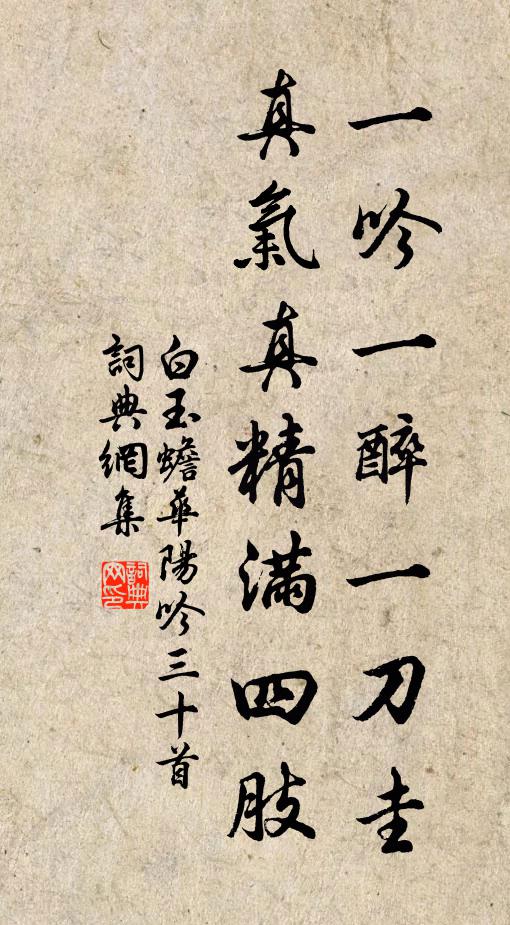 一吟一醉一刀圭
真氣真精滿四肢
白玉蟾華陽吟三十首
詞典網集
詞典网印